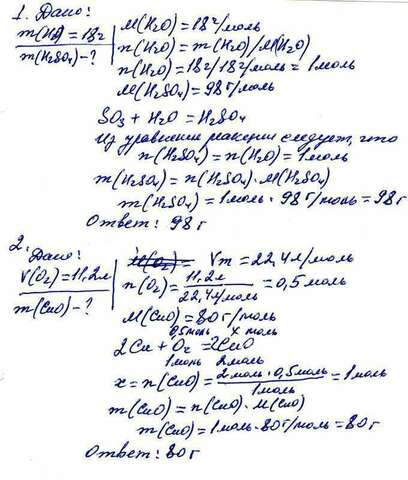 1. Дано:
m(H₂O) = 18г
m(H₂SO₄) - ?
M(H₂O) = 18 г/моль
n(H₂O) = m(H₂O)/M(H₂O)
n(H₂O) = 18г/18г/моль = 1моль
M(H₂SO₄) = 98г/моль
SO₃ + H₂O = H₂SO₄
Из уравнения реакции следует, что
n(H₂SO₄) = n(H₂O) = 1моль
m(H₂SO₄) = n(H₂SO₄) · M(H₂SO₄)
m(H₂SO₄) = 1моль · 98 г/моль = 98г
Ответ: 98 г
2. Дано:
V(O₂) = 11,2л
m(CuO) - ?
M(O₂) = Vm = 22,4л/моль
n(O₂) = 11,2л / 22,4л/моль = 0,5моль
M(CuO) = 80г/моль
0,5моль x моль
2Cu + O₂ = 2CuO
1моль 2моль
x = n(CuO) = 2моль · 0,5моль / 1моль = 1моль
m(CuO) = n(CuO) · M(CuO)
m(CuO) = 1моль · 80г/моль = 80г
Ответ: 80г